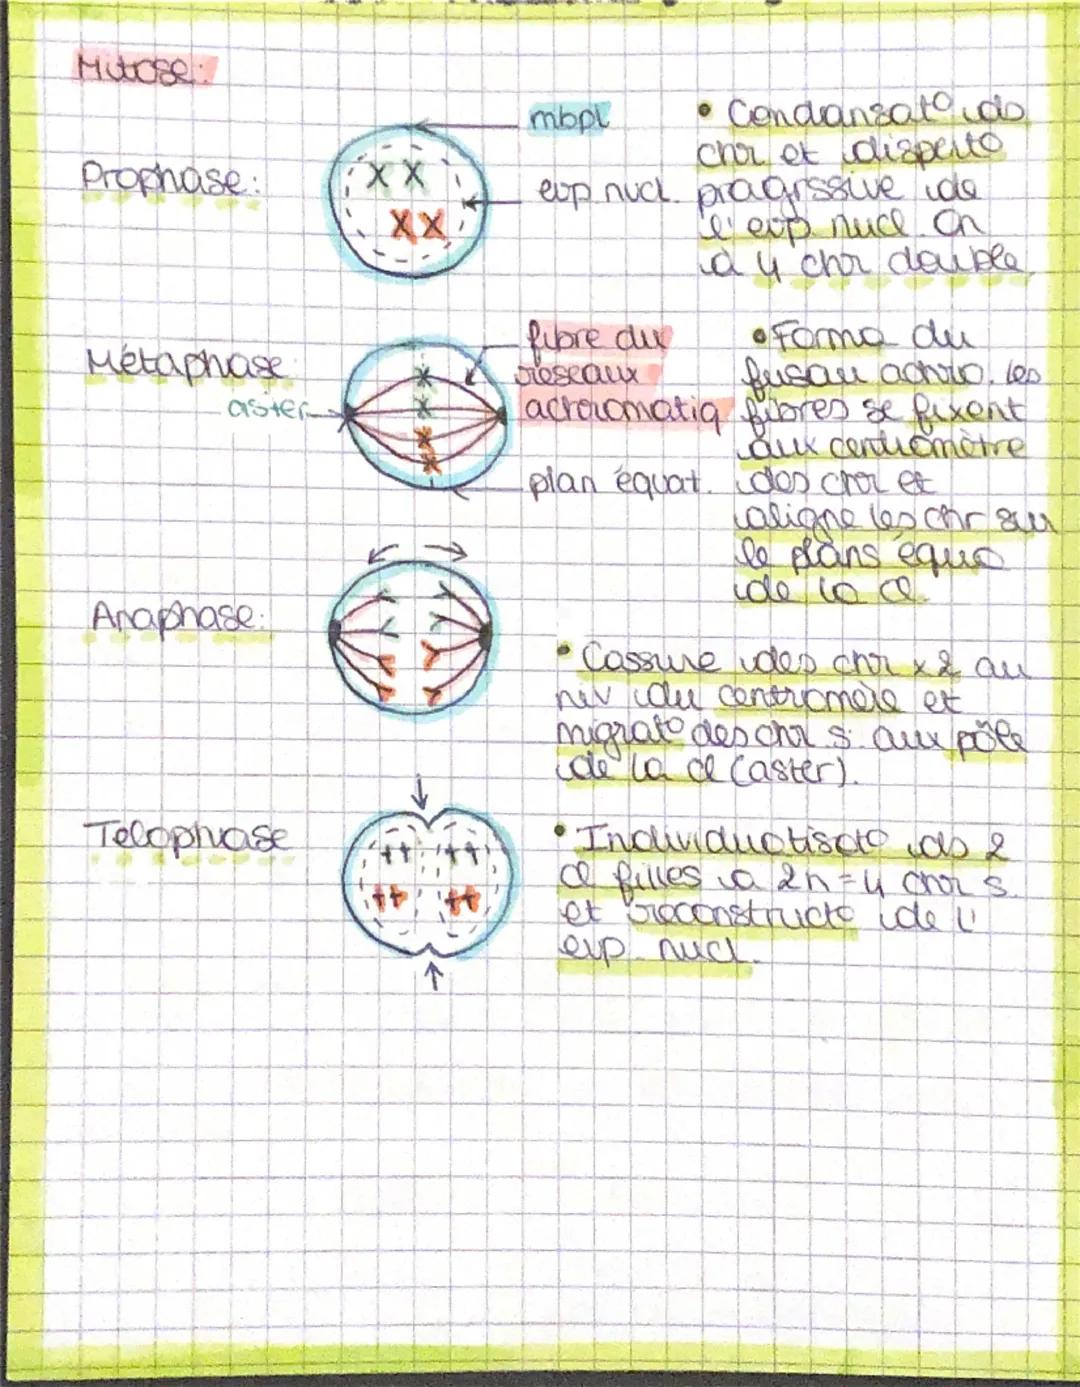 Mitose:
Prophase:
mbpl
evp. nucl.
• Condansat° ds
chr et disparit°
progrssive de
l'evp. nucl. On
a 4 chr double
Métaphase
aster
fibre du
réseaux
acrromatiq
plan équat.
• Forma du
fusau achro. les
fibres se fixent
aux centromètre
des chr et
aligne les chr sur
le plans équa
de la cl.
Anaphase:
• Cassure des chr x2 au
niv du centromère et
migrat° des chr s. aux pôle
de la cl (aster).
Télophase
• Individualisat° ds 2
cl filles a 2n=4 chr s.
et reconstruct° de l'
evp. nucl.